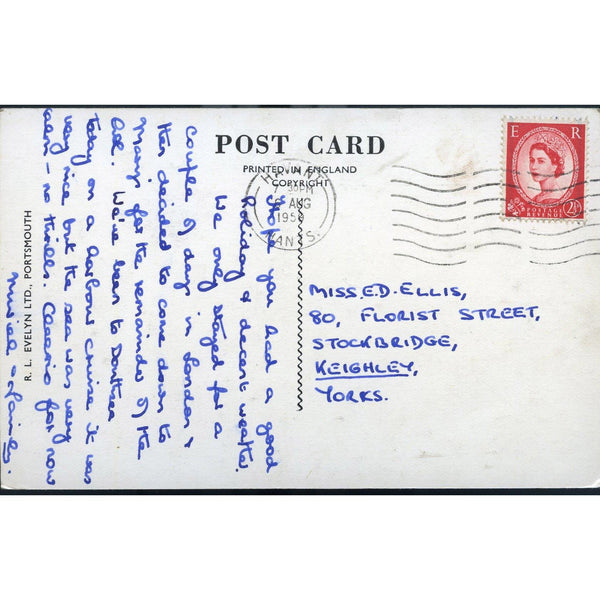 POST CARD
PRINTED IN ENGLAND
COPYRIGHT
7 30PM
AUG
HANTS.
E R
POSTAGE
REVENUE
2½
MISS. E.D. ELLIS,
80, FLORIST STREET,
STOCKBRIDGE,
KEIGHLEY,
YORKS.
Hope you had a good
holiday & decent weather.
We only stayed for a
couple of days in London &
then decided to come down to
Mary's for the remainder of the
time. We've been to Southsea
today on a harbour cruise it was
very nice but the sea was very
calm - no thrills. Cheerio for now
Muriel & family.
R. L. EVELYN LTD., PORTSMOUTH